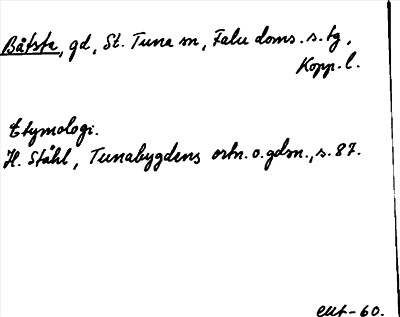 Båtsta, gd, St. Tuna sn, Falu doms. s. tg,
Kopp. l.
Etymologi.
H. Ståhl, Tunabygdens ortn. o. gdsn., s. 87.
-60.